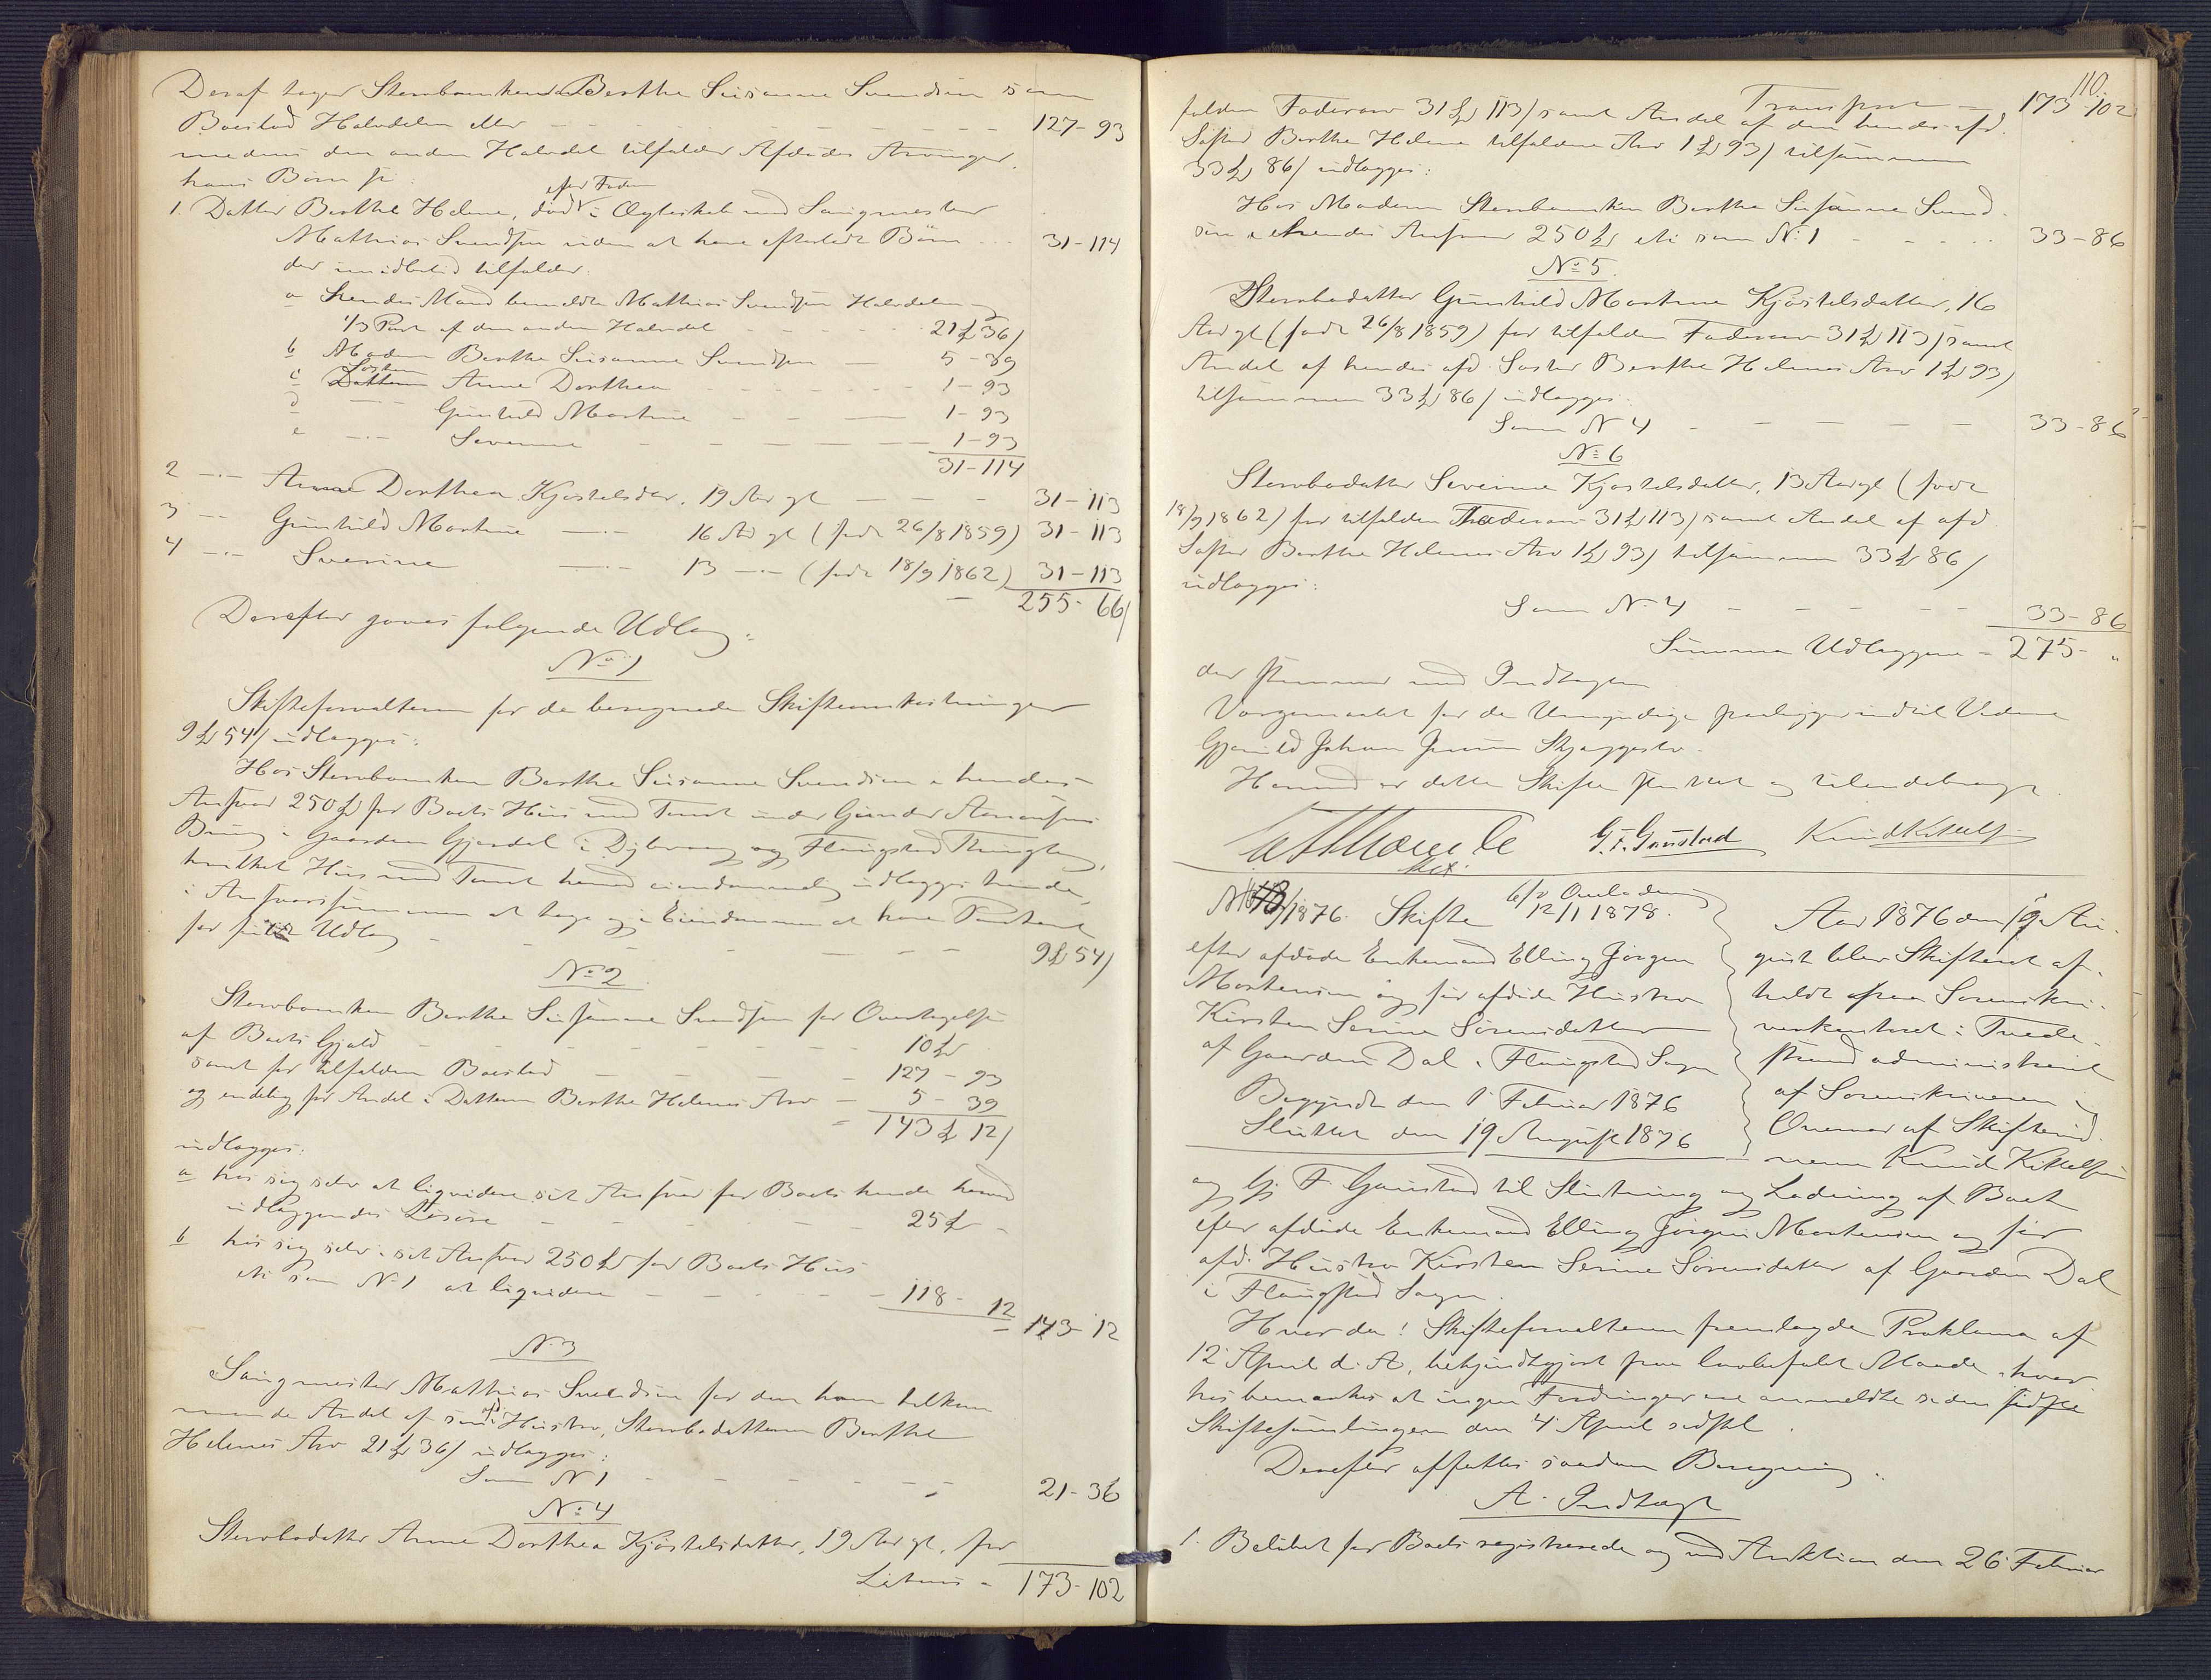 Deraf tager Stervboenken Berthe Susanne Svendsen som
Boeslod Halvdelen eller 127-93
medens den anden Halvdel tilfalder Afdødes Arvinger,
hans Børn:
efter Faderen
1. Datter Berthe Helene, død i Ægteskab med Saugmester
Mathias Svendsen uden at have efterladt Børn 31-114
der imidlertid tilfalder:
a hendes Mand bemeldte Mathias Svendsen Halvdelen og
1/3 Part af den anden Halvdel 21 36
b Moderen Berthe Susanne Svendsen 5-39
Søsteren
c Datteren Anne Dorthea 1-93
d Gunhild Martine 1-93
e Severine 1-93
31-114
2 Anne Dorthea Kjøstelsdtr. 19 Aar gl 31-113
3 Gunhild Martine 16 Aar gl (født 26/8 1859) 31-113
4 Severine 13 (født 18/9 1862) 31-113
255-66
Derefter gjøres følgende Udlæg:
No 1
Skifteforvalteren for de beregnede Skifteomkostninger
9 54 udlægges:
Hos Stervboenken Berthe Susanne Svendsen i hendes
Ansvar 250 for Boets Hus med Tomt under Gunder Aanonsens
Brug i Gaarden Gjerdal i Dybvaag og Flaugstad Thinglag,
hvilket Hus med Tomt hermed eiendommelig udlægges hende,
i Ansvarssummen at tage og i Eiendommen at have Panteret
for sit Udlæg 9 54
No 2
Stervboenken Berthe Susanne Svendsen for Overtagelse
af Boets Gjæld 10
samt for tilfalden Boeslod 127-93
og endelig for Andel i Datteren Berthe Helenes Arv 5-39
143 12
udlægges:
a hos sig selv at liqvidere sit Ansvar for Boets hende hermed
udlæggendes Løsøre 25
b hos sig selv i sit Ansvar 250 for Boets Hus
etc som No 1 at liqvidere 118-12
143-12
No 3
Saugmester Mathias Svendsen for den ham tilkom-
mende Andel af sin afd. Hustru, Stervbodatteren Berthe
Helenes Arv 21 36 udlægges:
Som No 1 21-36
No 4
Stervbodatter Anne Dorthea Kjøstelsdatter, 19 Aar gl. for
Latus 173-102
110.
Transport 173-102
falden Faderarv 31 113 samt Andel af den hendes afd.
Søster Berthe Helene tilfaldne Arv 1 93 tilsammen
33 86 udlægges:
Hos Moderen Stervboenken Berthe Susanne Svend-
sen i hendes Ansvar 250 etc som No 1 33-86
No 5
Stervbodatter Gunhild Martine Kjøstelsdatter, 16
Aar gl (født 26/8 1859) for tilfalden Faderarv 31 113 samt
Andel af hendes afd. Søster Berthe Helenes Arv 1 93
tilsammen 33 86 udlægges:
Som No 4 33-86
No 6
Stervbodatter Severine Kjøstelsdatter, 13 Aar gl (født
18/9 1862) for tilfalden Faderarv 31 113 samt Andel af afd
Søster Berthe Helenes Arv 1 93 tilsammen 33 86
udlægges:
Som No 4 33-86
Summa Udlæggene 275- "
der stemmer med Indtægten
Værgemaalet for de Umyndige
Johan
Hermed er dette Skifte sluttet og tilendebragt.
G. F. Gaustad Knud Kittelsen
/1876. Skifte 12/11 1878.
efter afdøde Enkemand Elling Jørgen
Mortensen og før afdøde Hustru
Kirsten Serine Sørensdatter
af Gaarden Dal i Flaugstad Sogn
Begyndt den 1 Februar 1876
Sluttet den 19 August 1876
Aar 1876 den 19 Au-
gust blev Skifteret af-
holdt paa Sorenskri-
verkontoret i Tvede-
strand administreret
af Sorenskriveren i
Overvær af Skiftevid-
nerne Knud Kittelsen
og G. F. Gaustad til Slutning og Lodning af Boet
efter afdøde Enkemand Elling Jørgen Mortensen og før
afd. Hustru Kirsten Serine Sørensdatter af Gaarden Dal
i Flaugstad Sogn.
Hvor da: Skifteforvalteren fremlagde Proklama af
12 April d. A, bekjendtgjort paa lovbefalet Maade, hvor-
hos bemærkes at ingen Fordringer ere anmeldte siden sidste
Skiftesamlingen den 4 April sidstl.
Derefter affattes saadan Beregning:
A. Indtægt
1. Beløbet for Boets registrerede og ved Auktion den 26 Februar